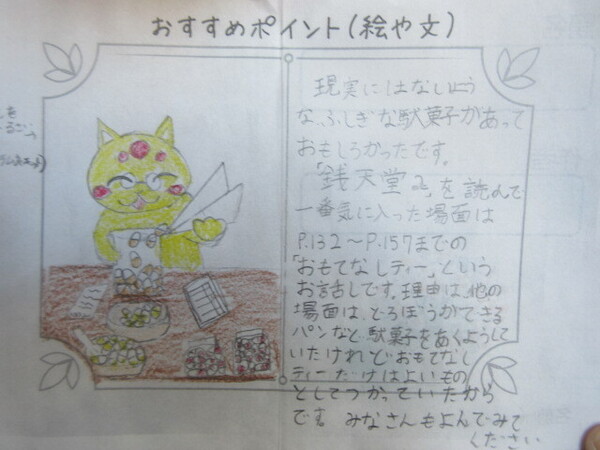 おすすめポイント(絵や文)
現実にはないよう
な、ふしぎな駄菓子があって
おもしろかったです。
「銭天堂2」を読んで
一番気に入った場面は
P.132〜P.157までの
「おもてなしティー」という
お話しです。理由は、他の
場面は、どろぼうができる
パンなど駄菓子をあくようして
いたけれどおもてなし
ティーだけはよいもの
としてつかっていたから
です。みなさんもよんでみて
ください